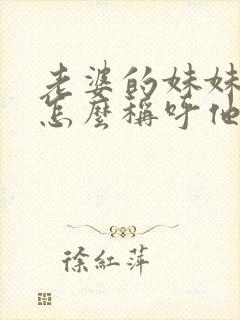 老婆的妹妹
怎麼稱呼他
徐紅萍